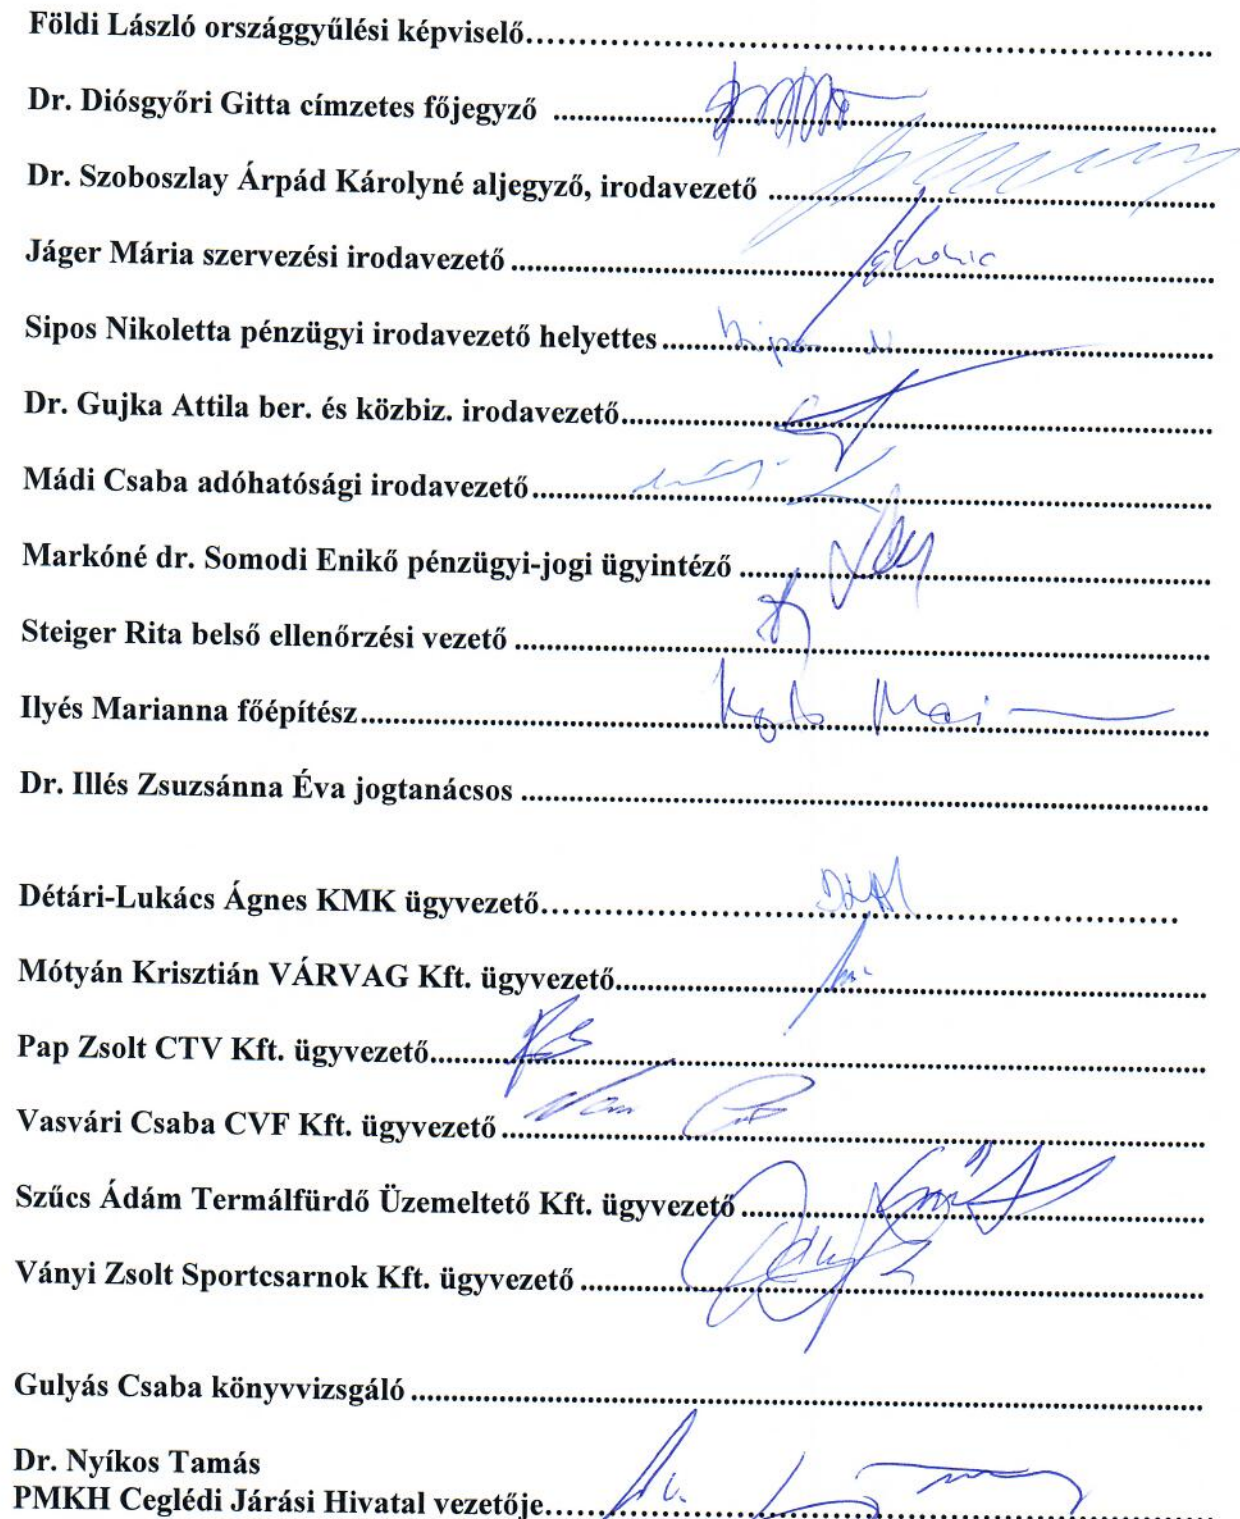 Földi László országgyűlési képviselő
Dr. Diósgyőri Gitta címzetes főjegyző
Dr. Szoboszlay Árpád Károlyné aljegyző, irodavezető
Jáger Mária szervezési irodavezető
Sipos Nikoletta pénzügyi irodavezető helyettes
Sipos N
Dr. Gujka Attila ber. és közbiz. irodavezető
Mádi Csaba adóhatósági irodavezető
Markóné dr. Somodi Enikő pénzügyi-jogi ügyintéző
Steiger Rita belső ellenőrzési vezető
Ilyés Marianna főépítész
Dr. Illés Zsuzsánna Éva jogtanácsos
Détári-Lukács Ágnes KMK ügyvezető
Mótyán Krisztián VÁRVAG Kft. ügyvezető
Pap Zsolt CTV Kft. ügyvezető
Vasvári Csaba CVF Kft. ügyvezető
Szűcs Ádám Termálfürdő Üzemeltető Kft. ügyvezető
Ványi Zsolt Sportcsarnok Kft. ügyvezető
Gulyás Csaba könyvvizsgáló
Dr. Nyíkos Tamás
PMKH Ceglédi Járási Hivatal vezetője